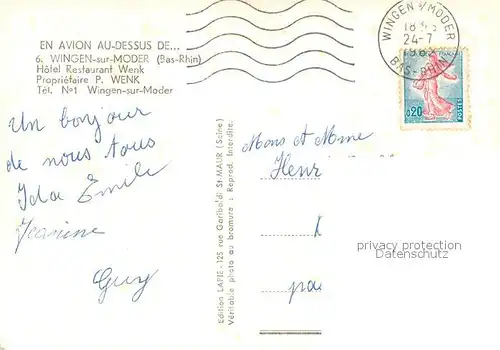 EN AVION AU-DESSUS DE...
6. WINGEN-sur-MODER (Bas-Rhin)
Hôtel Restaurant Wenk
Propriétaire P. WENK
Tél. Nº1 Wingen-sur-Moder
Un bonjour
de nous tous
Ida Emile
Jeanine
Guy
Edition LAPIE - 125 rue Garibaldi St-MAUR (Seine)
Véritable photo au bromure : Reprod. Interdite.
WINGEN S/MODER
24-7
BAS-RHIN
0,20
POSTES
Mons et Mme
Henr
privacy protection
Datenschutz
pa